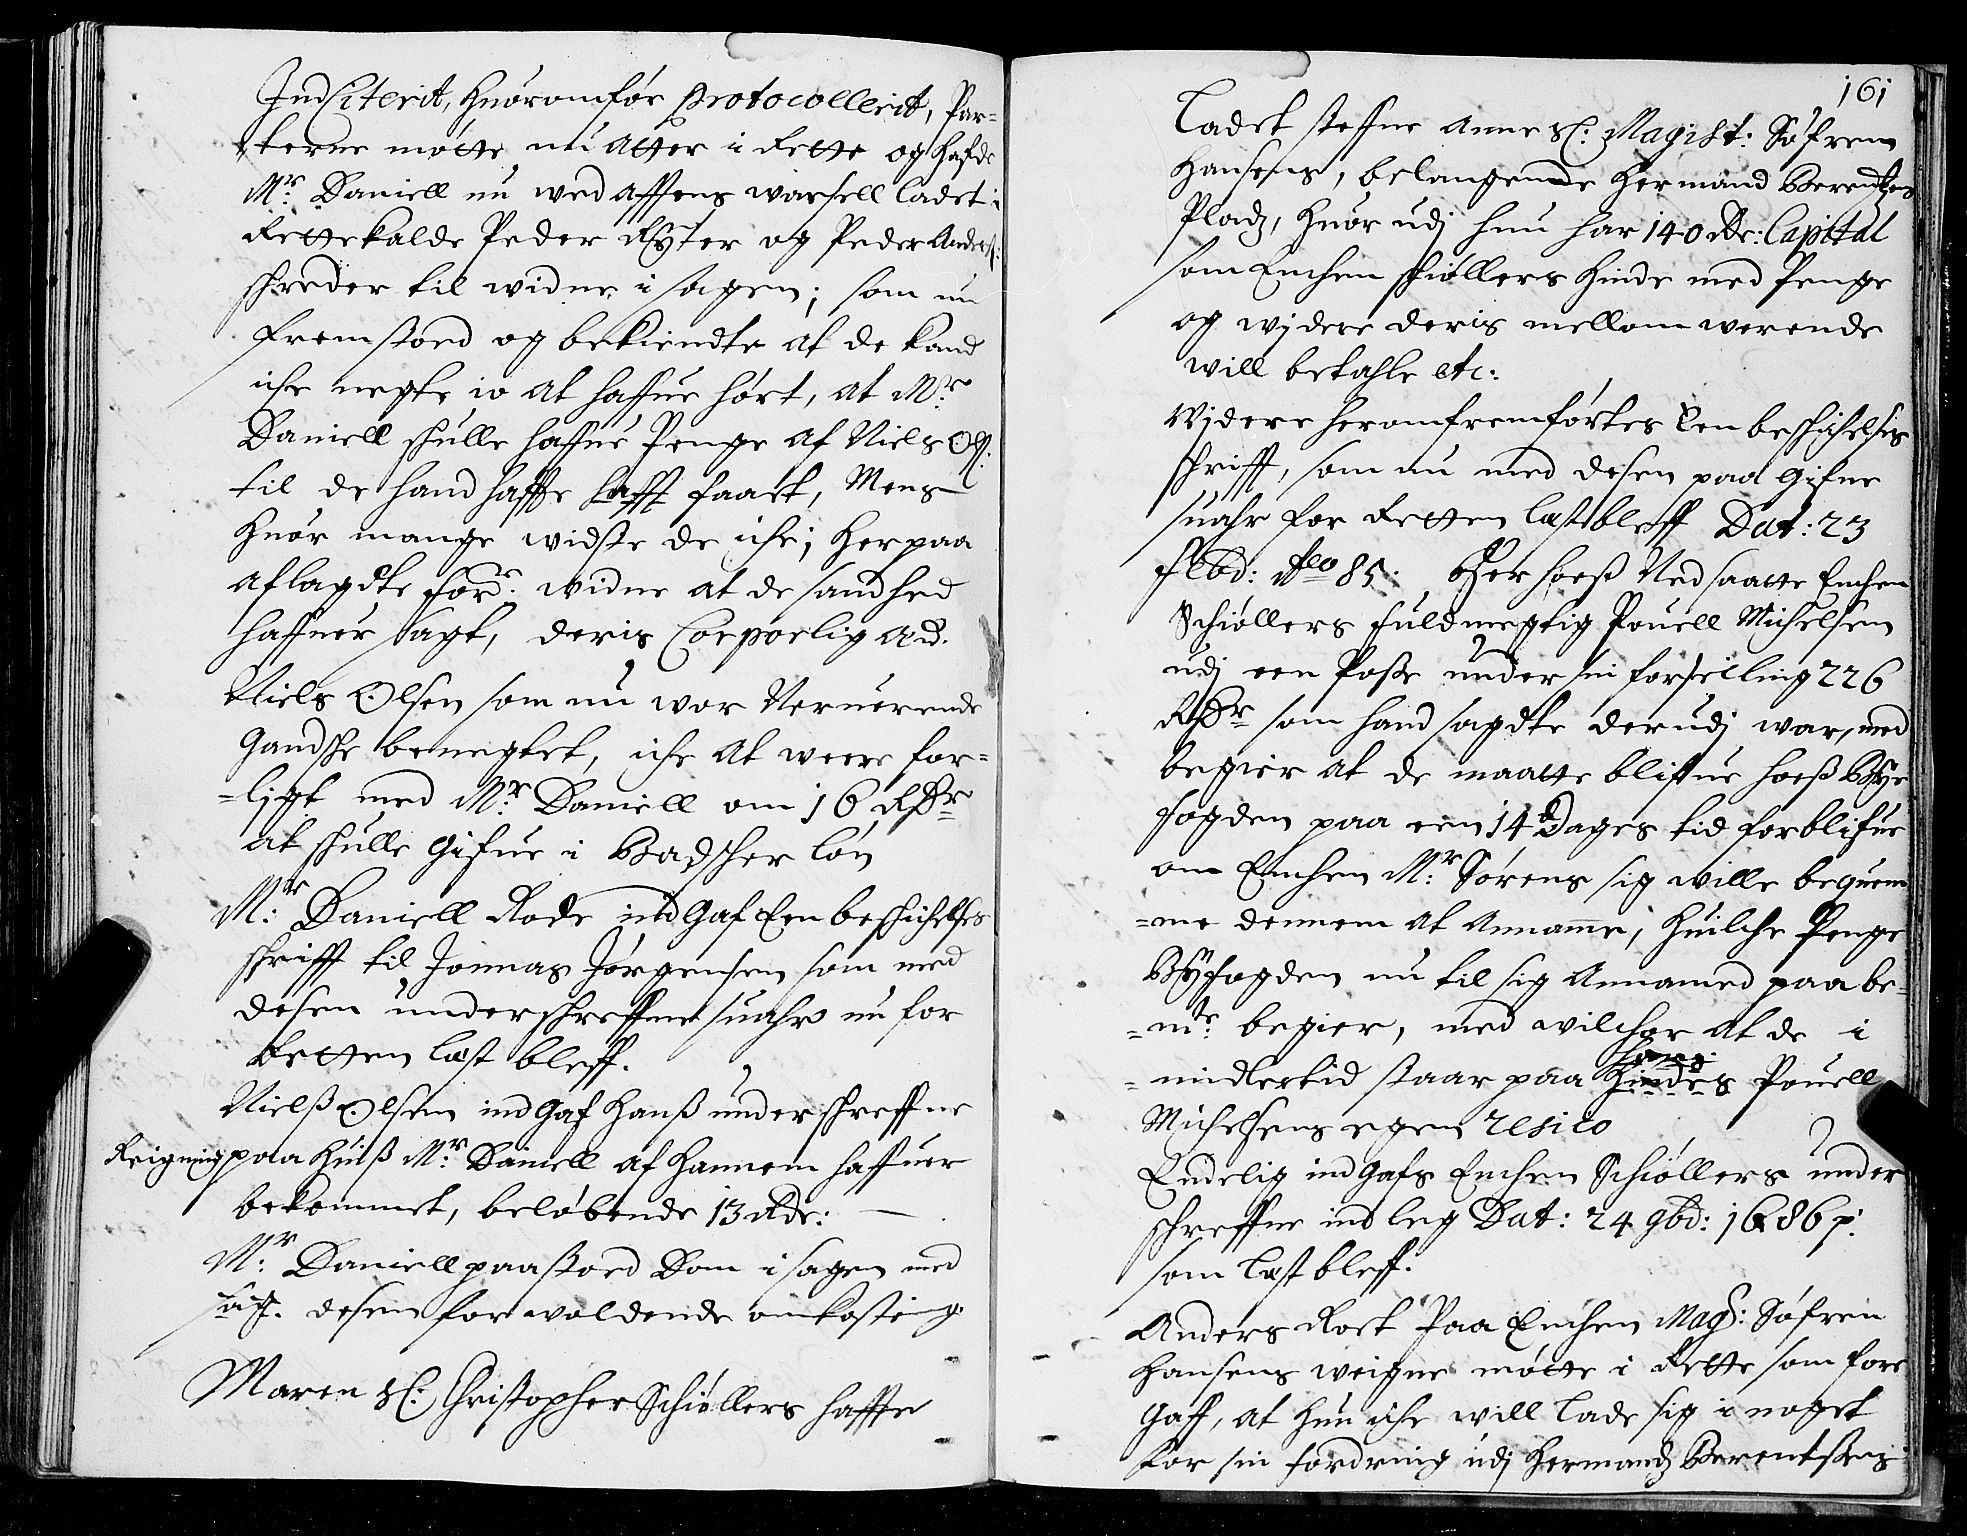 Indciterit, huoromfør protocollerit, Par-
terne møtte nu atter i Rette og hafde
Mr. Daniell nu wed affsens warsell ladet i
Rettekalde Peder Ryter og Peder Anders:
schreder til widne i sagen; som nu
fremstoed og bekiendte at de kand
iche negte io at haffue hørt, at Mr.
Daniell schulle haffue Penge af Niels Ols:
til de hand haffe hafft faaet, Mens
huor mange widste de iche; herpaa
aflagdte forde. widne at de sandhed
haffuer sagt, deris Corporlig Æd.
Niels Olsen som nu wor Neruerende
Gandsche benegtet, iche at were for-
=ligt med Mr. Daniell om 16 Rdr
at schulle Gifue i Badscher løn
Mr. Daniell Rode ind Gaf Een beschichelses
schrifft til Jonnas Jørgensen som med
desen underschreffne suahr nu for
Retten læst bleff.
Nielß Olsen ind Gaf hanß underschreffne
Reigning paa huiß Mr. Daniell af hannem haffuer
bekommet, beløbende 13 Rdr:
Mr. Daniell paastoed Dom i sagen med
sag. desen forwoldende omkosting
Maren Sl: Christopher Schiøllers haffer
161
Ladet steffne Anne Sl: Magist: Søfren
Hansens, belangende Hermand Berendtzens
Pladz, huor udj hun har 140 Rdr: Capital
som Enchen schiøllers hinde med Penge
og widere deris mellom werende
will betahle etc:
Widere herom fremførtes Een beschichelses
schrifft, som nu med desen paa Gifne
suahr for Retten læst bleff Dat: 23
Flbd: Ao 85. Her hoeß Ned saatte Enchen
Schiøllers fuldmegtig Pouell Michelsen
udj een Poße under sin forseilling 226
Rdr som hand sagdte derudj war, med
begier at de maatte blifue hoeß Bye
fogden paa een 14 Dages tid forblifue
om Enchen Mr. Sørens sig wille bequem
=me dennem at Annamme, huilche Penge
Byfogden nu til sig Annamed paa be-
=mte. begier, med wilchor at de i
=midlertid staar paa hans hindes Pouell
Michelsens egen resico
Endelig ind Gafs Enchen Schiøllers under
schreffne indleg Dat: 24 9bd: 1686 p:
som læst bleff.
Anders Roet Paa Enchen Mags: Søfren
Hansens weigne møtte i Rette som fore
Gaff, at hun iche will lade sig i noget
for sin fordring udj Hermandz Berentsens